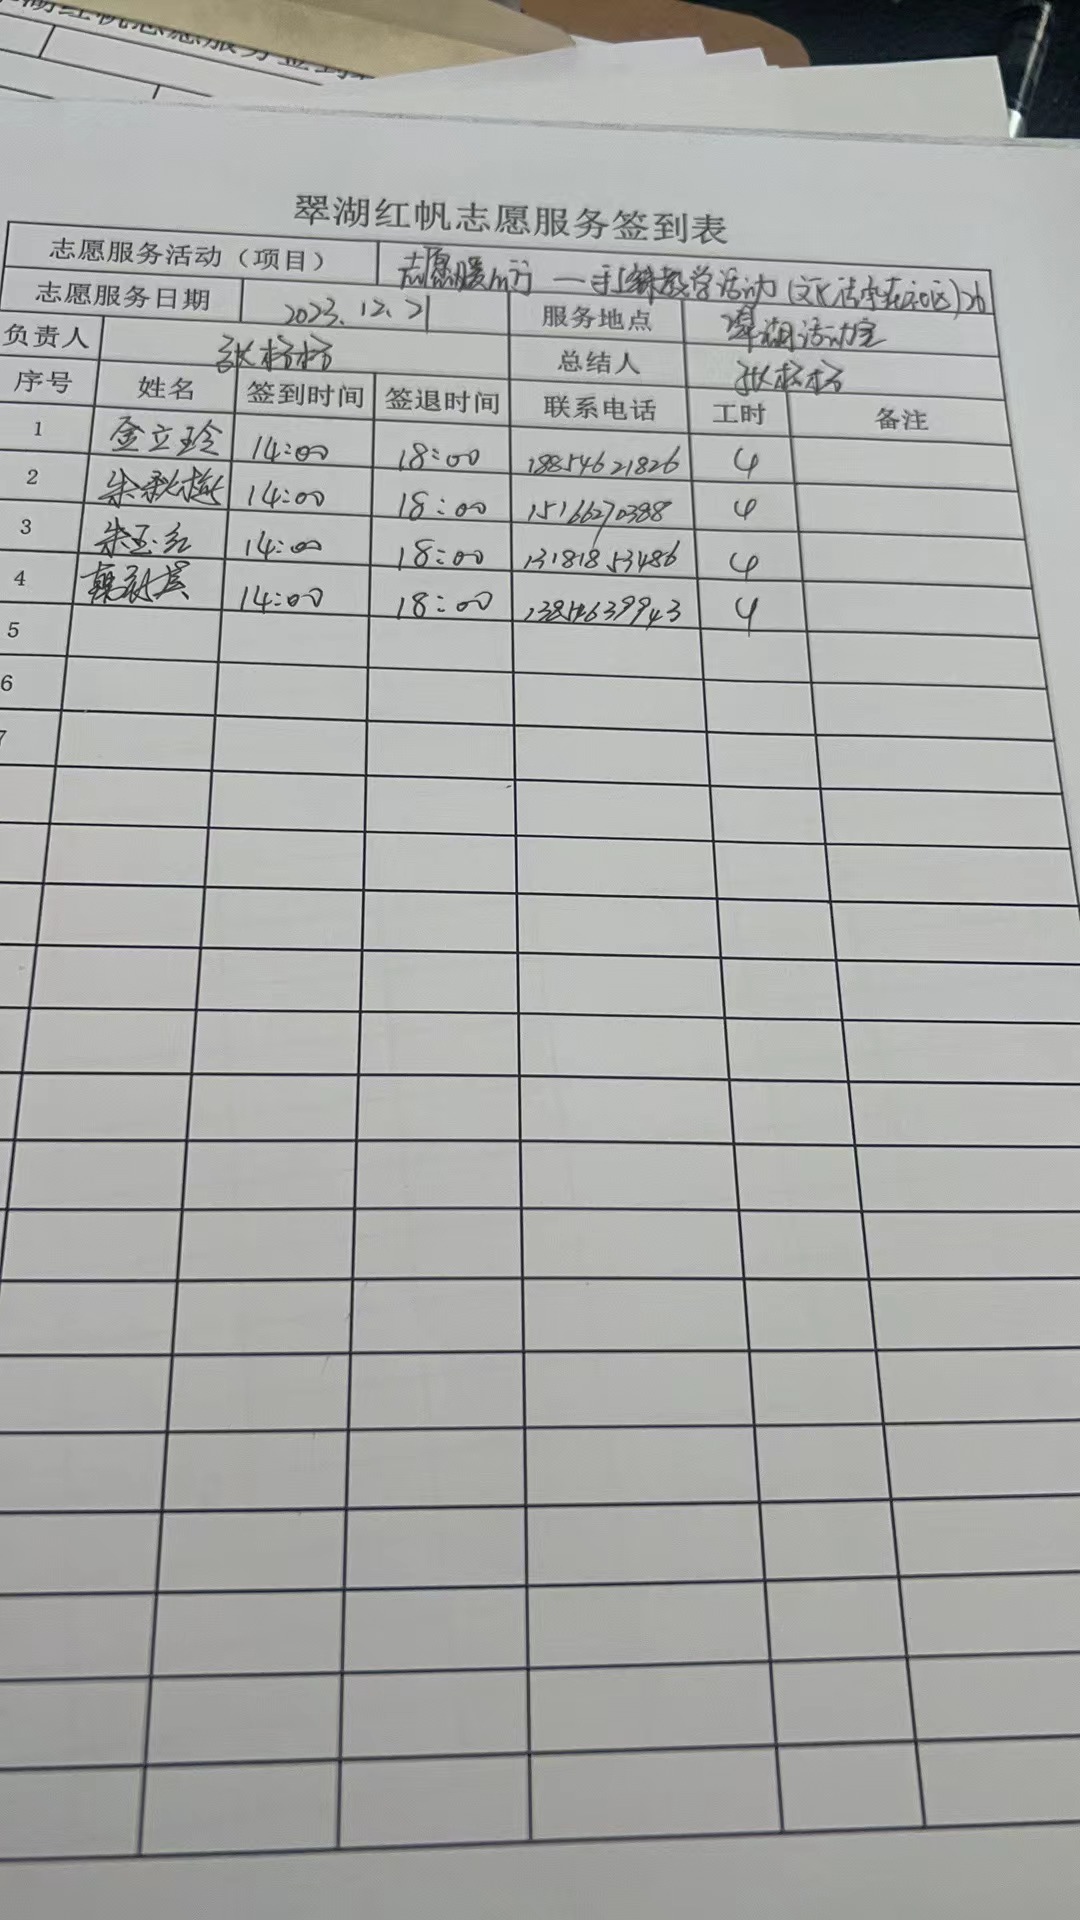 湖红帆志愿服务签到表
翠湖红帆志愿服务签到表
志愿服务活动（项目） 志愿暖心行 一手工编织教学活动（文化活动在社区）26
志愿服务日期 2023.12.21 服务地点 翠湖活动室
负责人 张杨杨 总结人 张杨杨
序号 姓名 签到时间 签退时间 联系电话 工时 备注
1 金立玲 14:00 18:00 18854621826 4
2 朱秋梅 14:00 18:00 15166270388 4
3 朱玉红 14:00 18:00 13181853486 4
4 14:00 18:00 13854639943 4
5
6
7